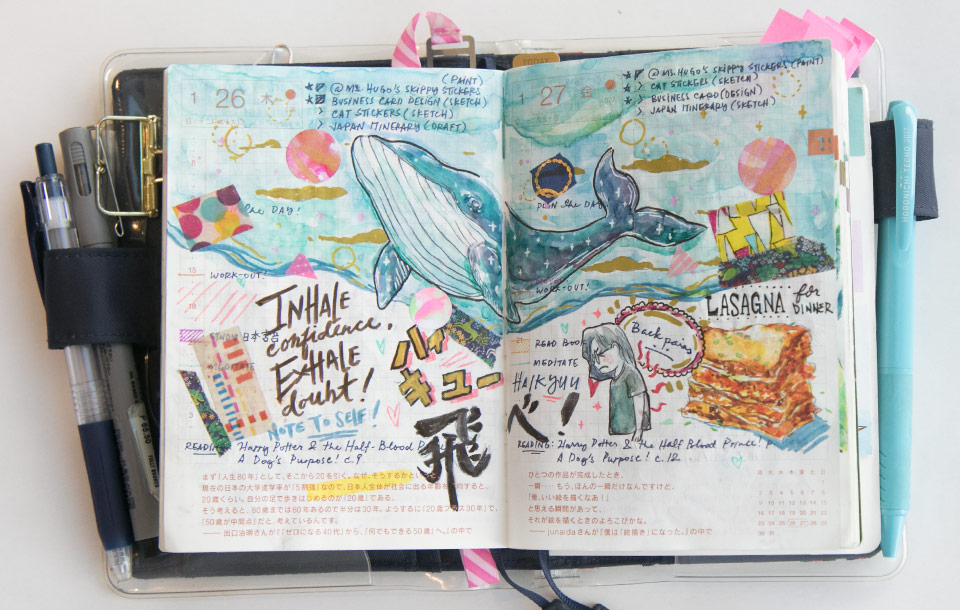 1 26 木
(PAINT)
@MS. HUGO'S SKIPPY STICKERS
BUSINESS CARD DESIGN (SKETCH)
CAT STICKERS (SKETCH)
JAPAN ITINERARY (DRAFT)
the DAY!
15
WORK-OUT!
18
STUDY 日本書合
INHALE
confidence.
EXHALE
doubt!
NOTE TO SELF!
ハイ
キュー
飛
READING: HARRY POTTER & the HALF-BLOOD P
A DOG'S PURPOSE! C.9
まず「人生80年」として、そこから20を引く。なぜ、そうするかと
現在の日本の大学進学率が「5割強」なので、日本人全体が社会に出る年齢を
20歳くらい。自分の足で歩きはじめるのが「20歳」である。
そう考えると、80歳までは60年あるので半分は30年。ようするに「20歳プラス30年」で、
「50歳が中間点」だと、考えているんです。
——出口治明さんが『「ゼロになる40代」から、「何でもできる50歳」へ。』の中で
TODAY
1 27 金
@MS. HUGO'S SKIPPY STICKERS (PAINT)
CAT STICKERS (SKETCH)
BUSINESS CARD (DESIGN)
JAPAN ITINERARY (SKETCH)
PLAN the DAY
WORK-OUT!
LASAGNA for
DINNER
21
READ BOO
Back pains
MEDITATE
HAIKYUU
べ!
READING: HARRY POTTER & the HALF BLOOD PRINCE! P
A DOG'S PURPOSE! C.12
ひとつの作品が完成したとき、
一瞬……もう、ほんの一瞬だけなんですけど、
「俺、いい絵を描くなあ!」
と思える瞬間があって、
それが絵を描くときのよろこびかな。
——junaidaさんが『僕は「絵描き」になった。』の中で
HOBONICHI TECHO 2017